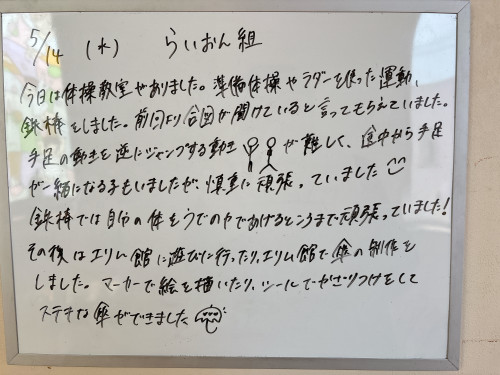 5/14 (水) らいおん組
今日は体操教室がありました。準備体操やラダーを使った運動、
鉄棒をしました。前回より合図が聞けていると言ってもらえていました。
手足の動きを逆にジャンプする動き が難しく、途中から手足
が一緒になる子もいましたが、慎重に頑張っていました
鉄棒では自分の体をうでの力であげるところまで頑張っていました!
その後はエリム館に遊びに行ったり、エリム館で傘の制作を
しました。マーカーで絵を描いたり、シールでかざりつけをして
ステキな傘ができました